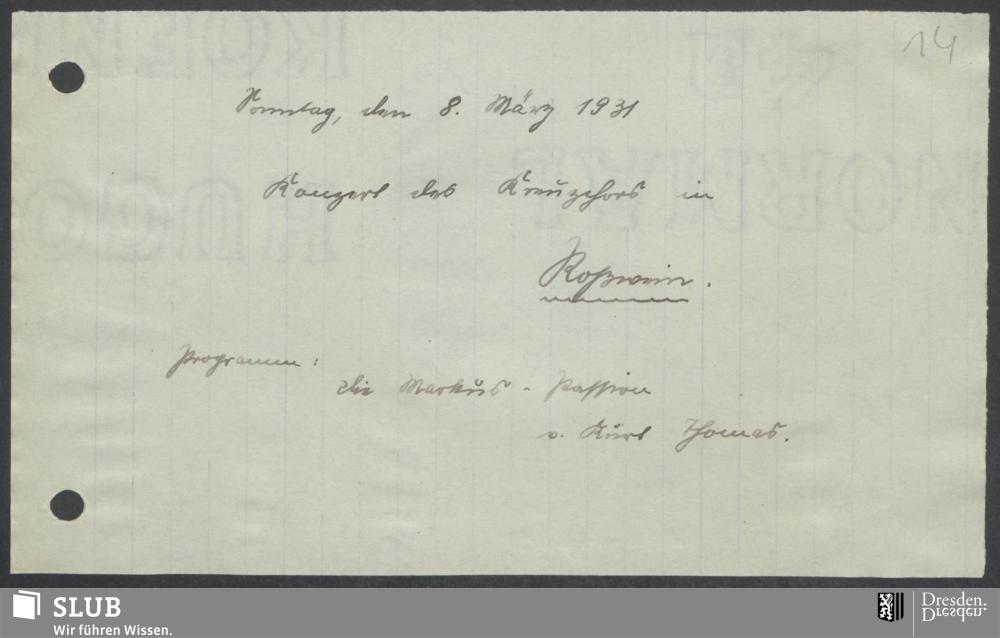 14
Sonntag, den 8. März 1931
Konzert des Kreuzchors in
Roßwein.
Programm:
die Markus-Passion
v. Kurt Thomas.
SLUB
Wir führen Wissen.
Dresden.
Dresden.